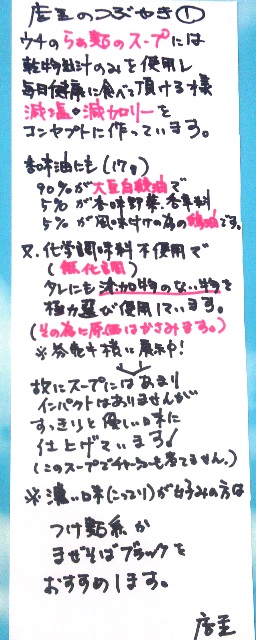 店主のつぶやき①
ウチのらぁ麺のスープには
乾物出汁のみを使用し
毎日健康に食べて頂ける様
減塩・減カロリーを
コンセプトに作っています。
香味油にも(17g)
90%が大豆白絞油で
5%が香味野菜、香辛料
5%が風味付けの為の鶏油です。
又、化学調味料不使用で
(無化調)
タレにも添加物のない物を
極力選び使用しています。
(その為に原価はかさみます。)
※券売機横に展示中!
故にスープにはあまり
インパクトはありませんが
すっきりと優しい味に
仕上げています!
(このスープでチャーシューも煮てません。)
※濃い味(こってり)が好みの方は
つけ麺系か
まぜそばブラックを
おすすめします。
店主